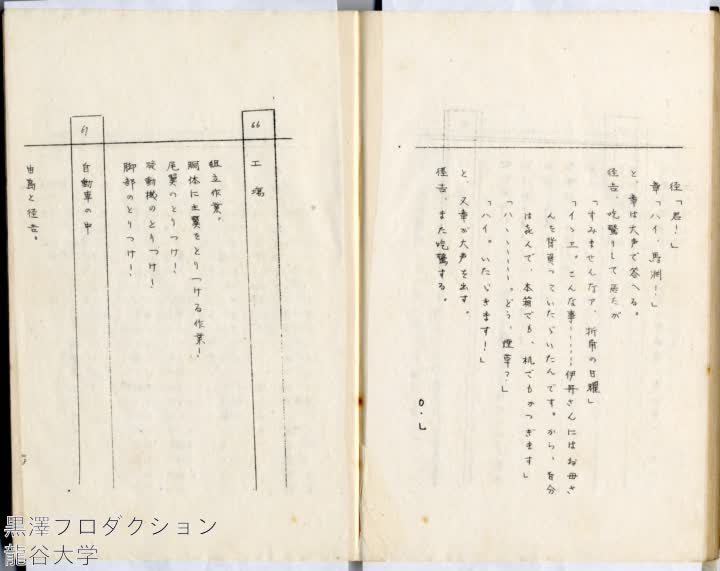 径「君！」
章「ハイ、馬渕！」
と、章は大声で答へる。
径吉、吃驚りして居たが
「すみませんなア、折角の日曜」
「イヽエ。こんな事……伊丹さんにはお母さ
んを背負っていたゞいたんです。から、自分
は喜んで、本箱でも、机でもかつぎます」
「ハヽヽヽヽヽ。どう、煙草？」
「ハイ。いたゞきます！」
と、又章が大声を出す。
径吉、また吃驚する。
O・L
66
工場
組立作業。
胴体に主翼をとりつける作業！
尾翼のとりつけ！
発動機のとりつけ！
脚部のとりつけ！
67
自動車の中
由島と径吉。
黒澤プロダクション
龍谷大学